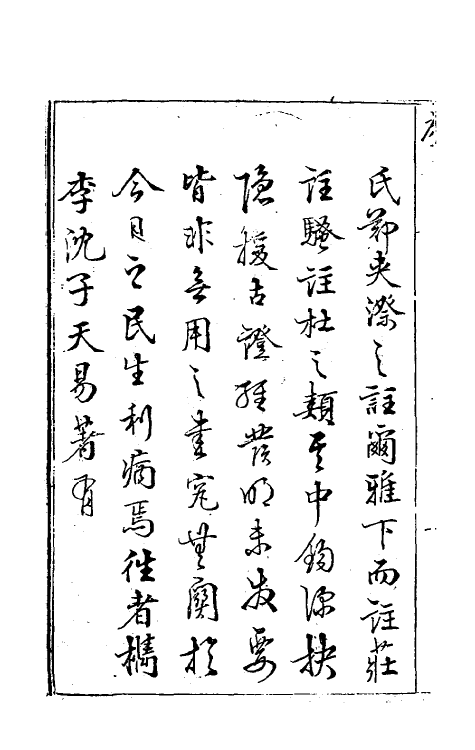 氏鄭夾漈之註爾雅下而註莊
註騷註杜之類其中鉤深抉
隱援古證經發明未發要
皆非無用之書究無關於
今日之民生利病焉往者檇
李沈子天易著有